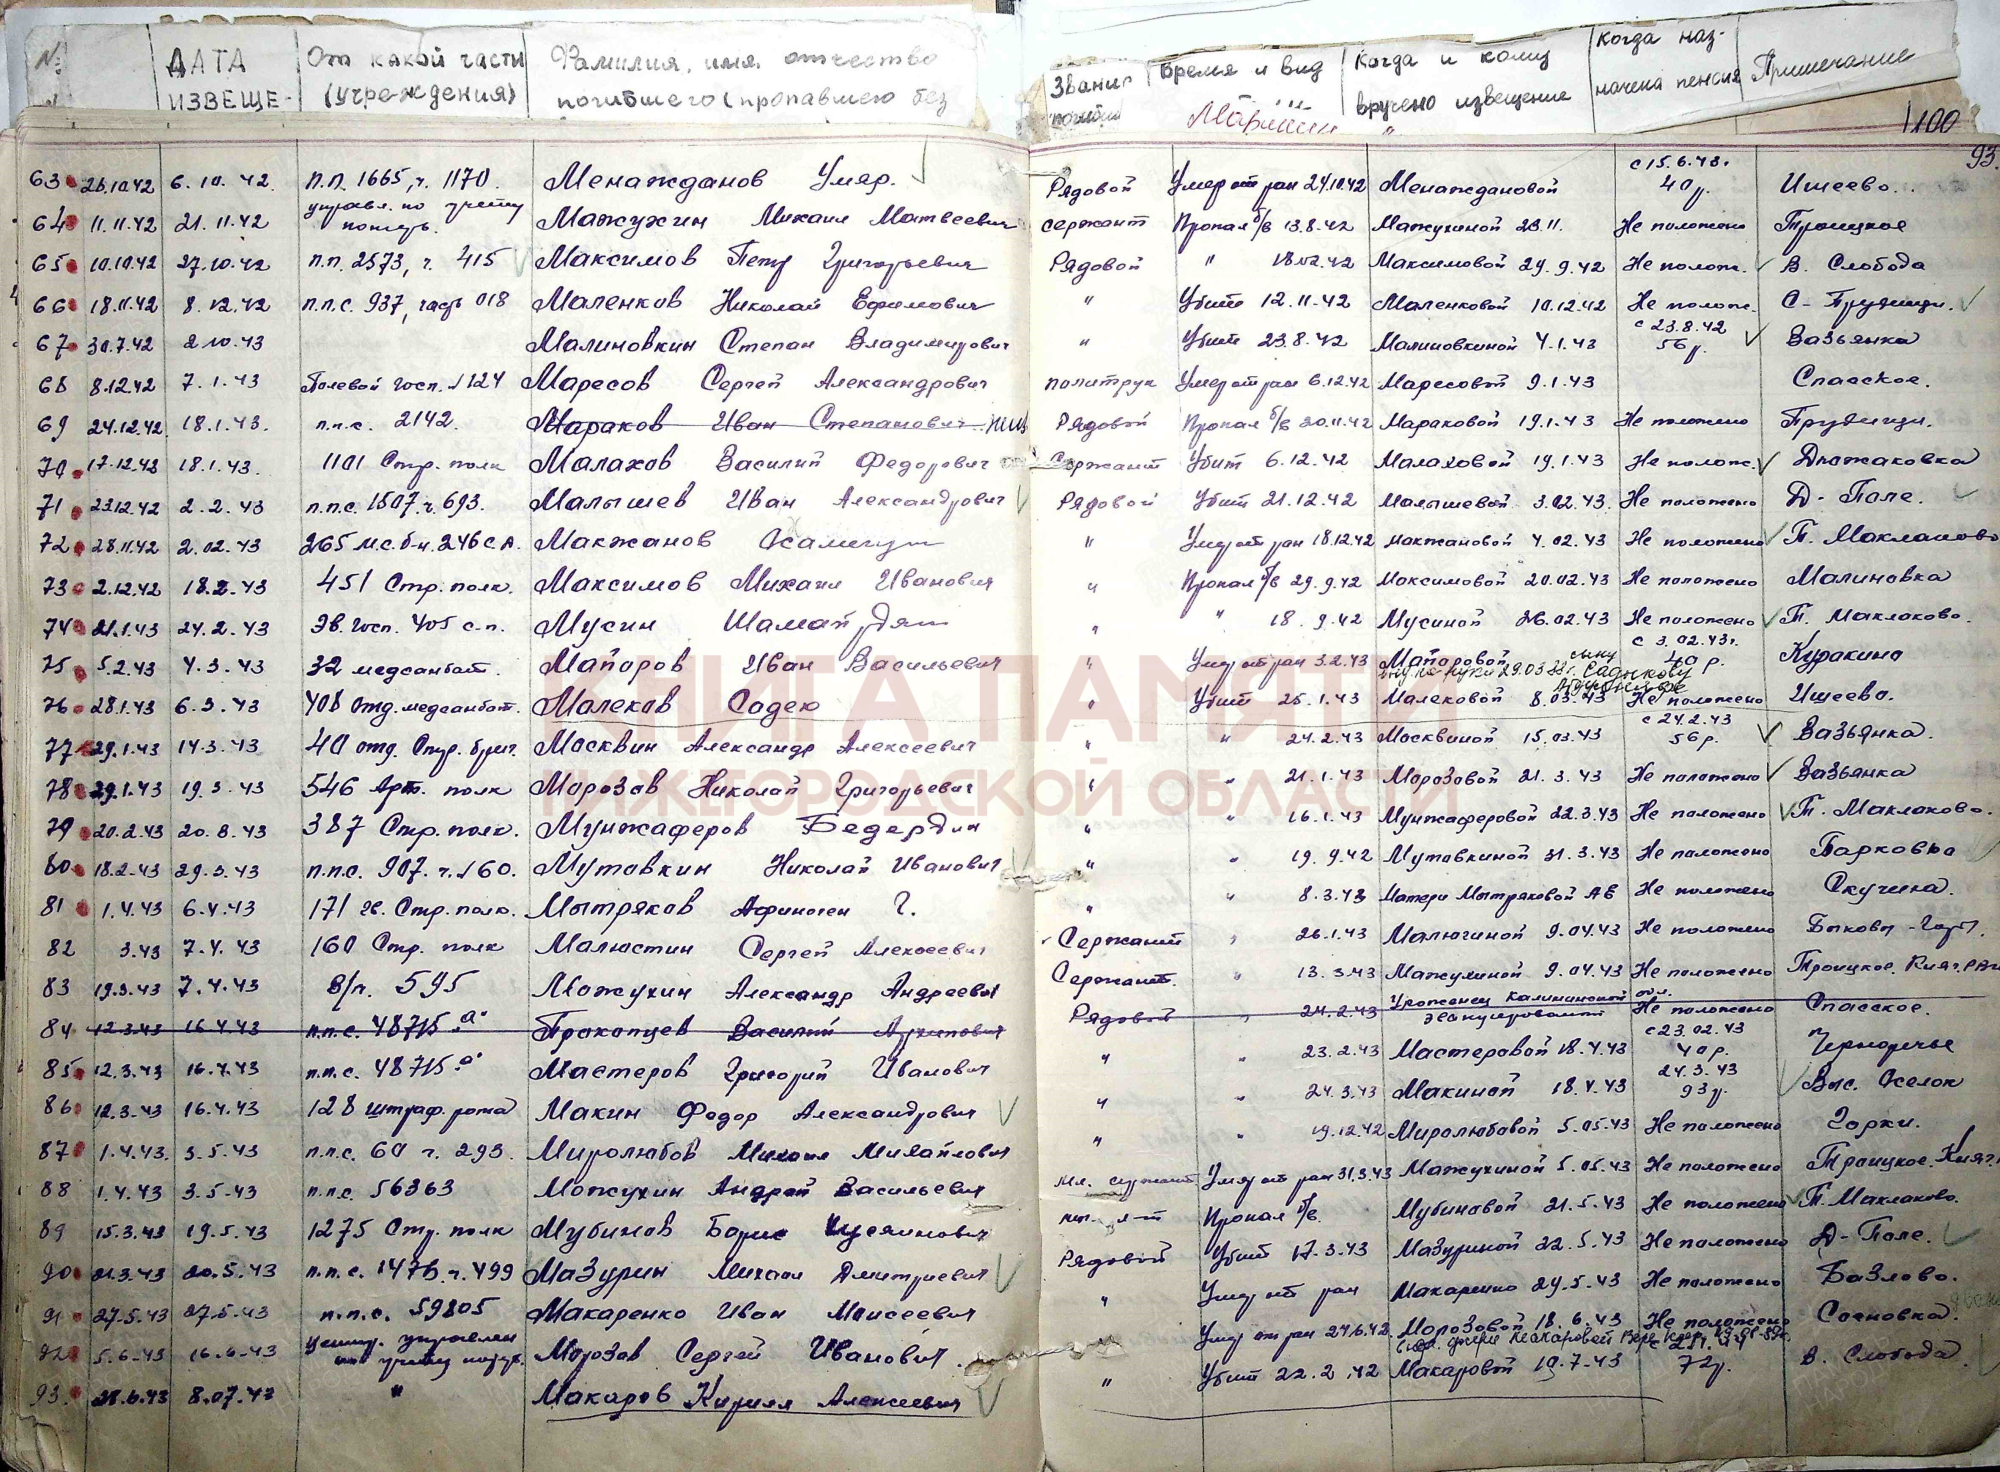 №
ДАТА
ИЗВЕЩЕ-
От какой части
(учреждения)
Фамилия, имя, отчество
погибшего (пропавшего без
Звание
погибш
Время и вид
Когда и кому
вручено извещение
Когда наз-
начена пенсия
Примечание
100
93.
63 26.10.42 6.10.42. п.п. 1665, ч. 1170. Менажданов Умяр. Рядовой Умер от ран 24.10.42 Менаждановой с 15.6.43г. 40 р. Ишеево.
64 11.11.42 21.11.42 управл. по учету потерь. Мажухин Михаил Матвеевич сержант Пропал б/в 13.8.42 Мажухиной 23.11. Не положено Троицкое
65 10.10.42 27.10.42 п.п. 2573, ч. 415 Максимов Петр Григорьевич Рядовой " 18.02.42 Максимовой 29.9.42 Не полож. В. Слобода
66 18.11.42 8.12.42 п.п.с. 937, часть 018 Маленков Николай Ефимович " Убит 12.11.42 Маленковой 10.12.42 Не полож. С-Прудищи.
67 30.7.42 2.10.43 Малиновкин Степан Владимирович " Убит 23.8.42 Малиновкиной 4.1.43 с 23.8.42 56 р. Вазьянка
68 8.12.42 7.1.43 Полевой госп. 1124 Маресов Сергей Александрович политрук Умер от ран 6.12.42 Маресовой 9.1.43 Спасское.
69 24.12.42 18.1.43. п.п.с. 2142. Мараков Иван Степанович жив Рядовой Пропал б/в 20.11.42 Мараковой 19.1.43 Не положено Прудищи.
70. 17.12.42 18.1.43. 1101 Стр. полк Малахов Василий Федорович Сержант Убит 6.12.42 Малаховой 19.1.43 Не полож. Дюжаковка
71 23.12.42 2.2.43 п.п.с. 1507. ч. 693. Малышев Иван Александрович Рядовой Убит 21.12.42 Малышевой 3.02.43. Не положено Д-Поле.
72 28.11.42 2.02.43 265 м.с.б-н. 246 с.д. Макжанов " Умер от ран 18.12.42 Макжановой 4.02.43 Не положено Т. Маклаково
73 2.12.42 18.2.43 451 Стр. полк. Максимов Михаил Иванович " Пропал б/в 29.9.42 Максимовой 20.02.43 Не положено Малиновка
74 21.1.43 24.2.43 Эв. госп. 405 с.п. Мусин " " 18.9.42 Мусиной 26.02.43 Не положено Т. Маклаково.
75 5.2.43 4.3.43 32 медсанбат. Майоров Иван Васильевич " Умер от ран 3.2.43 Майоровой с 3.02.43г. 40 р. Куракино
сыну
29.03 Садекову
76 28.1.43 6.3.43 408 отд. медсанбат. Малеков Садек " Убит 25.1.43 Малековой 8.03.43 Не положено Ишеево.
77 29.1.43 14.3.43 40 отд. Стр. бриг. Москвин Александр Алексеевич " " 24.2.43 Москвиной 15.03.43 с 24.2.43 56 р. Вазьянка.
78 29.1.43 19.3.43 546 Арт. полк Морозов Николай Григорьевич " " 21.1.43 Морозовой 21.3.43 Не положено Вазьянка
79 20.2.43 20.3.43 387 Стр. полк. Мунжаферов Бедердин " " 16.1.43 Мунжаферовой 22.3.43 Не положено Т. Маклаково.
80 18.2.43 29.3.43 п.п.с. 907. ч. 160. Мутовкин Николай Иванович " " 19.9.42 Мутовкиной 31.3.43 Не положено Барковка
81 1.4.43 6.4.43 171 гв. Стр. полк. Мытряков Афиноген Г. " " 8.3.43 Матери Мытряковой АВ Не положено Скучиха.
82 3.43 7.4.43 160 Стр. полк Малюгин Сергей Алексеевич Сержант " 26.1.43 Малюгиной 9.04.43 Не положено Быковы-Горы.
83 19.3.43 7.4.43 в/ч. 595 Мажухин Александр Андреевич Сержант. " 13.3.43 Мажухиной 9.04.43 Не положено Троицкое.
84 12.3.43 16.4.43 п.п.с. 48715 "а" Прокопцев Василий Архипович Рядовой " 24.2.43 Уроженец Калининской обл. эвакуированный Не положено Спасское.
85 12.3.43 16.4.43 п.п.с. 48715 "а" Мастеров Григорий Иванович " " 23.2.43 Мастеровой 18.4.43 с 23.02.43 40 р. Черноречье
86 12.3.43 16.4.43 128 штраф. рота Макин Федор Александрович " " 24.3.43 Макиной 18.4.43 24.3.43 93 р. Выс. Оселок
87 1.4.43. 3.5.43 п.п.с. 60 ч. 293. Миролюбов Михаил Михайлович " " 19.12.42 Миролюбовой 5.05.43 Не положено Горки.
88 1.4.43 3.5.43 п.п.с. 56363 Можухин Андрей Васильевич мл. сержант Умер от ран 31.3.43 Мажухиной 5.05.43 Не положено Троицкое.
89 15.3.43 19.5.43 1275 Стр. полк Мубинов Борис мл. л-т Пропал б/в. Мубиновой 21.5.43 Не положено Т. Маклаково.
90 21.3.43 20.5.43 п.п.с. 1476. ч. 499 Мазурин Михаил Дмитриевич Рядовой Убит 17.3.43 Мазуриной 22.5.43 Не положено Д-Поле.
91 27.5.43 27.5.43 п.п.с. 59805 Макаренко Иван Моисеевич " Умер от ран Макаренко 29.5.43 Не положено Базлово.
92 5.6.43 16.6.43 Центр. управлен по учету потерь. Морозов Сергей Иванович. Умер от ран 24.6.42. Морозовой 18.6.43 Не положено Сосновка.
93. 28.6.43 8.07.43 " Макаров Кирилл Алексеевич " Убит 22.2.42 Макаровой 19.7.43 72 р. В. Слобода
КНИГА ПАМЯТИ
НИЖЕГОРОДСКОЙ ОБЛАСТИ